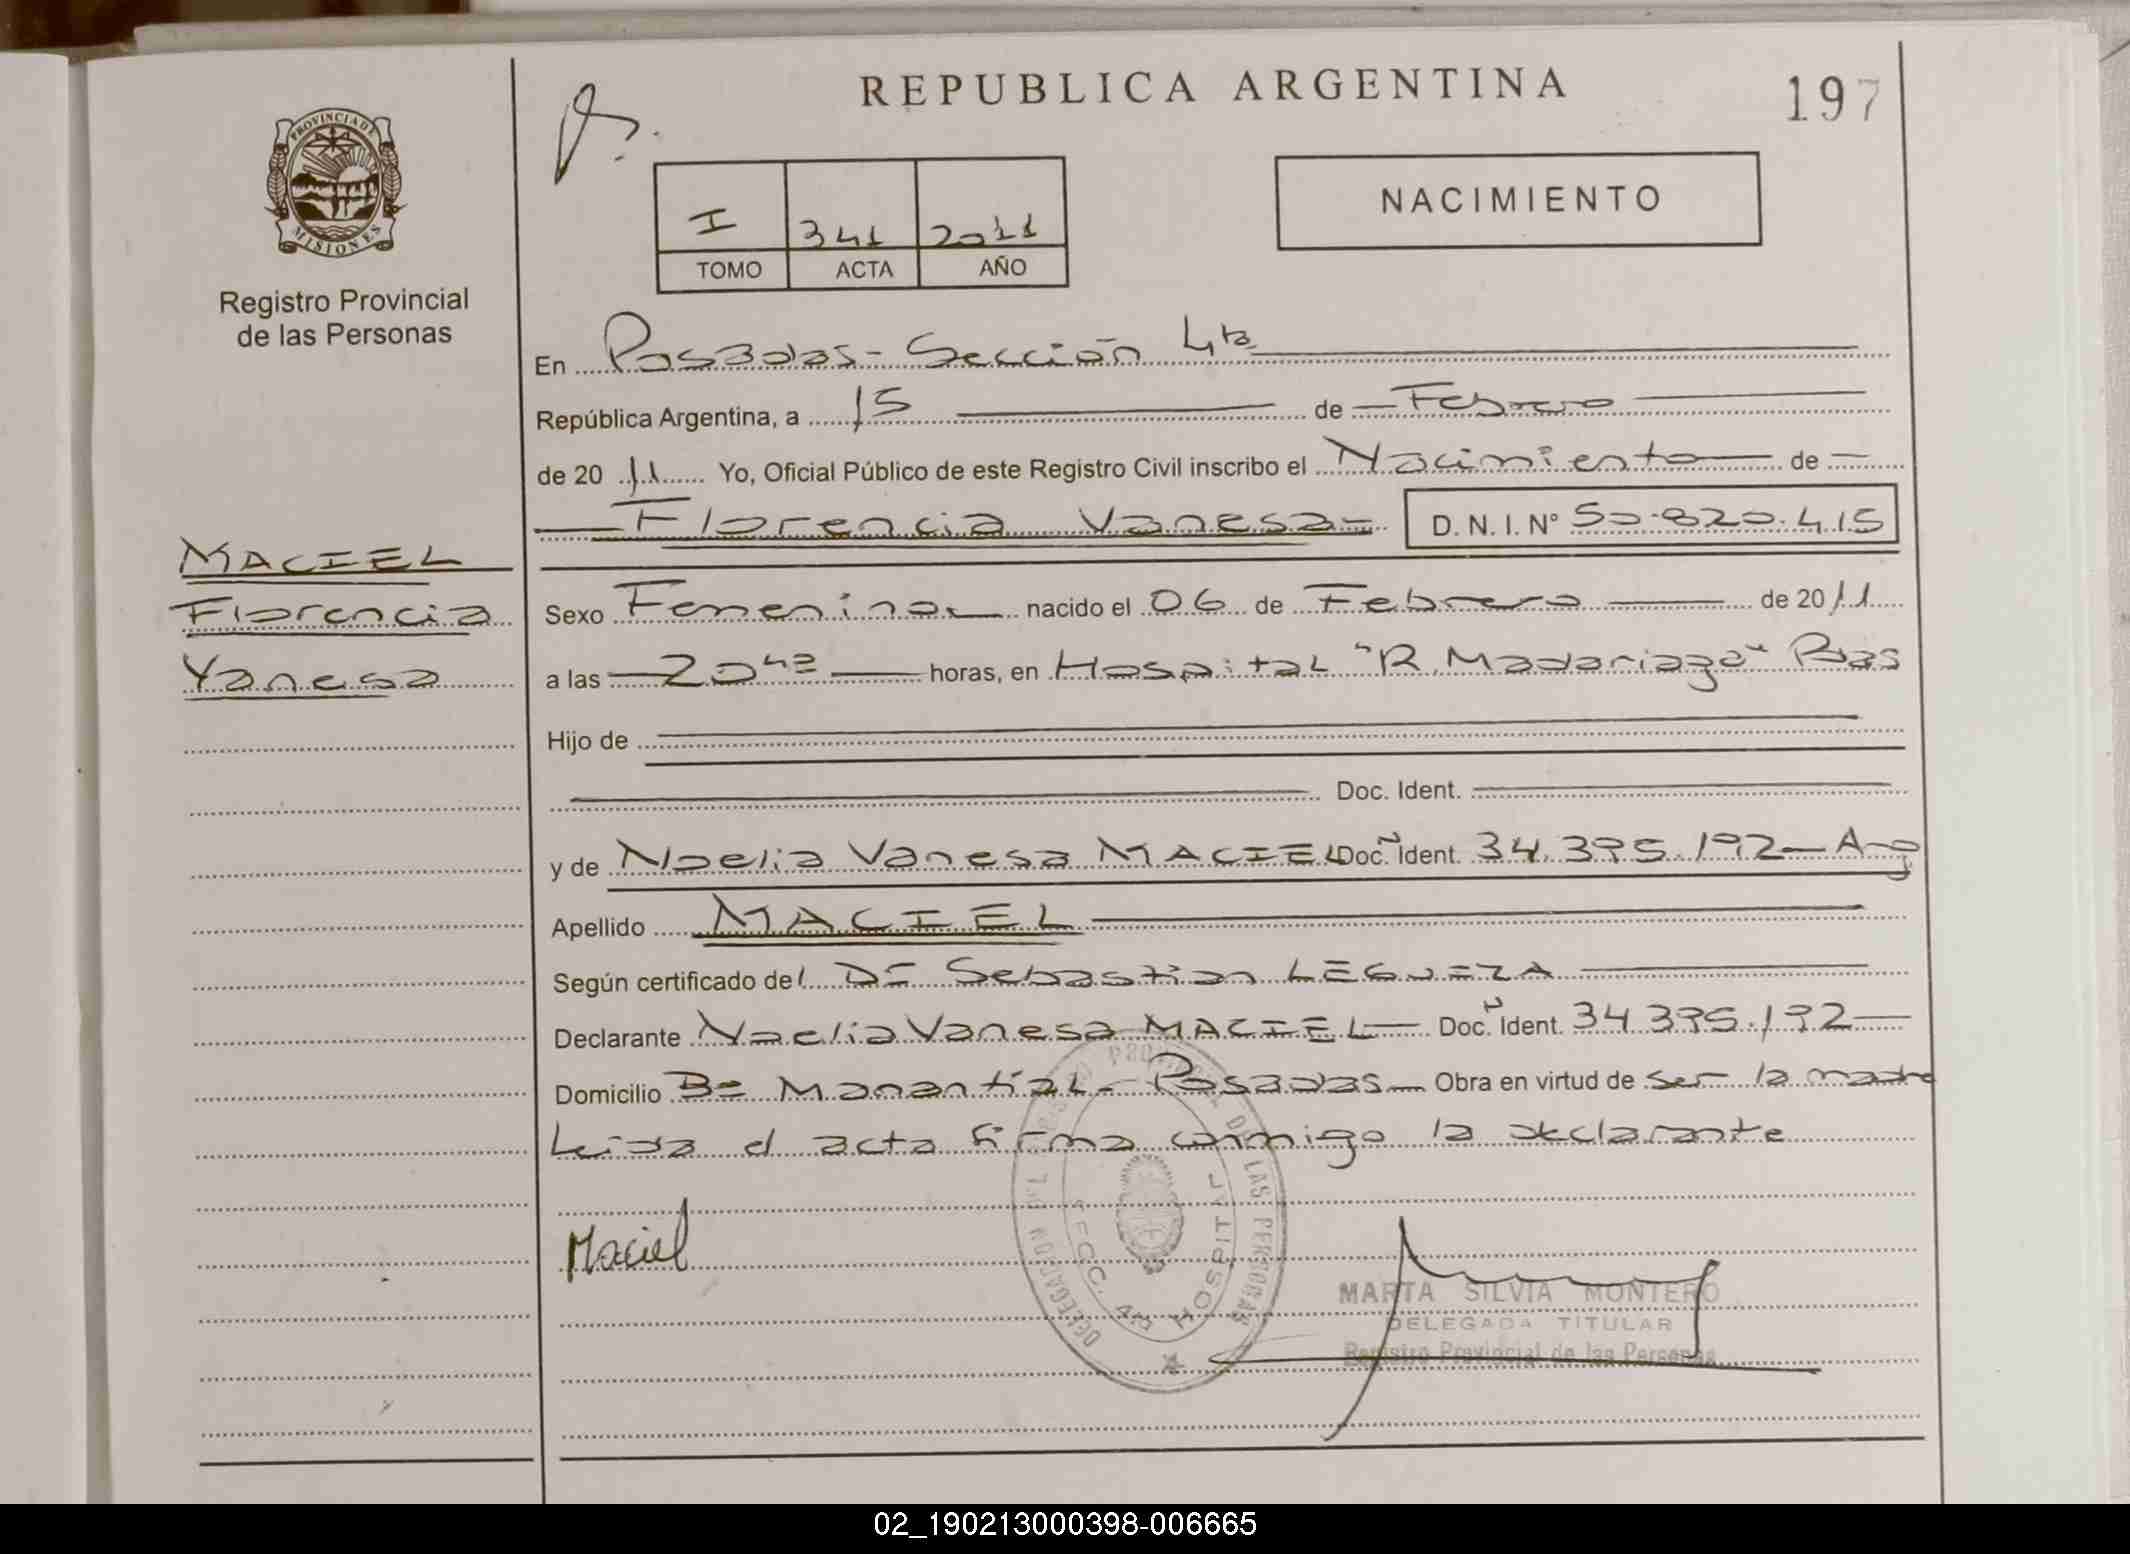 REPUBLICA ARGENTINA
197
PROVINCIA DE
MISIONES
Registro Provincial
de las Personas
I 341 2011
TOMO ACTA AÑO
NACIMIENTO
En Posadas - Sección 4ta
República Argentina, a 15 de Febrero
de 2011 Yo, Oficial Público de este Registro Civil inscribo el Nacimiento de
Florencia Vanesa D. N. I. Nº 50.820.415
MACIEL
Florencia
Vanesa
Sexo Femenino nacido el 06 de Febrero de 2011
a las 20 42 horas, en Hospital "R. Madariaga" Pdas
Hijo de
Doc. Ident.
y de Noelia Vanesa MACIEL Doc. Ident. 34.395.192 - Arg
Apellido MACIEL
Según certificado del Dr Sebastian LEGUEZA
Declarante Noelia Vanesa MACIEL Doc. Ident. 34.395.192
Domicilio Bº Manantial - Posadas Obra en virtud de ser la madre
Leida el acta firma conmigo la declarante
Maciel
DELEGACION REGISTRO PROVINCIAL DE LAS PERSONAS
SECC. 4ta HOSPITAL
MARTA SILVIA MONTERO
DELEGADA TITULAR
Registro Provincial de las Personas
02_190213000398-006665